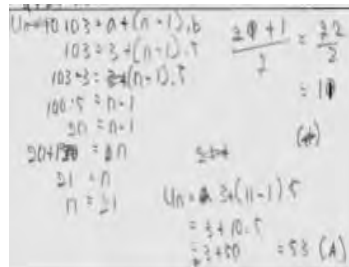 103 = a + (n-1).b
103 = 3 + (n-1).5
103-3 = (n-1).5
100:5 = n-1
20 = n-1
20+1 = n
21 = n
n = 21
+1 / 2 = 22/2
= 11
Un = 3+(11-1).5
= 3+10.5
= 3+50 = 53 (A)